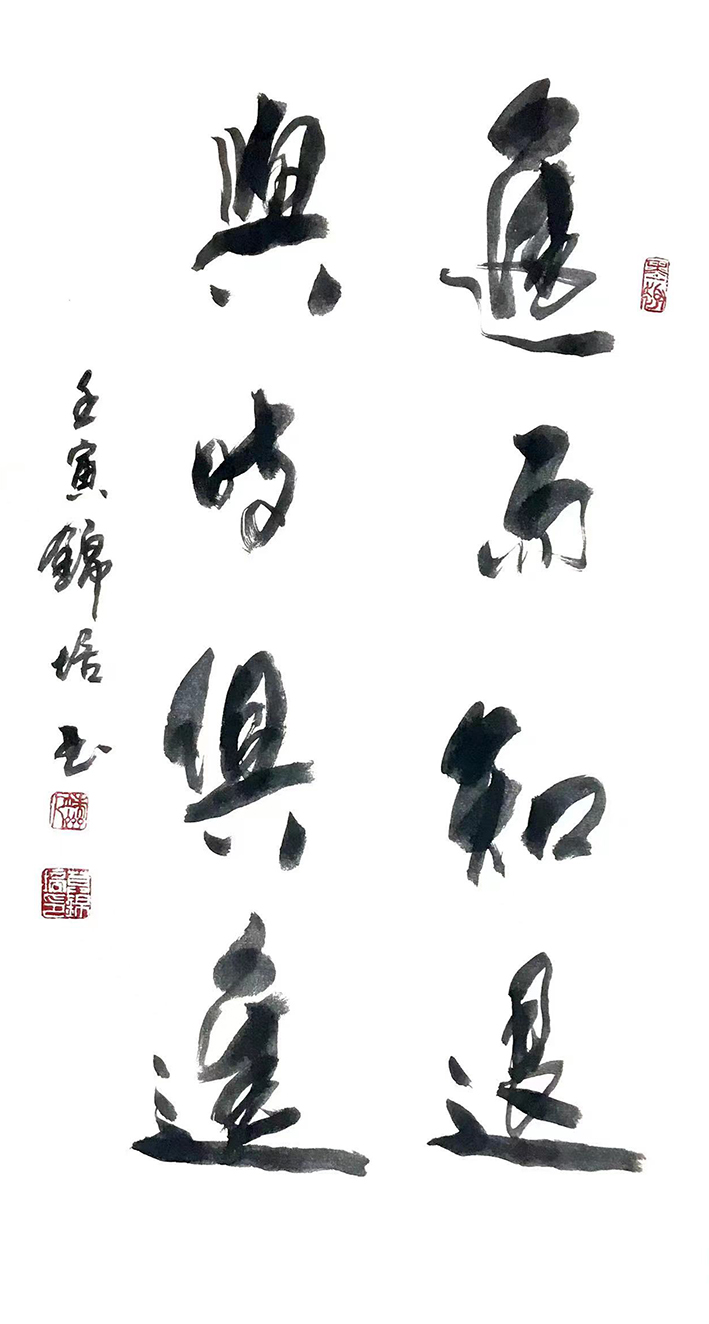 進而知退
與時俱進
壬寅錦培书